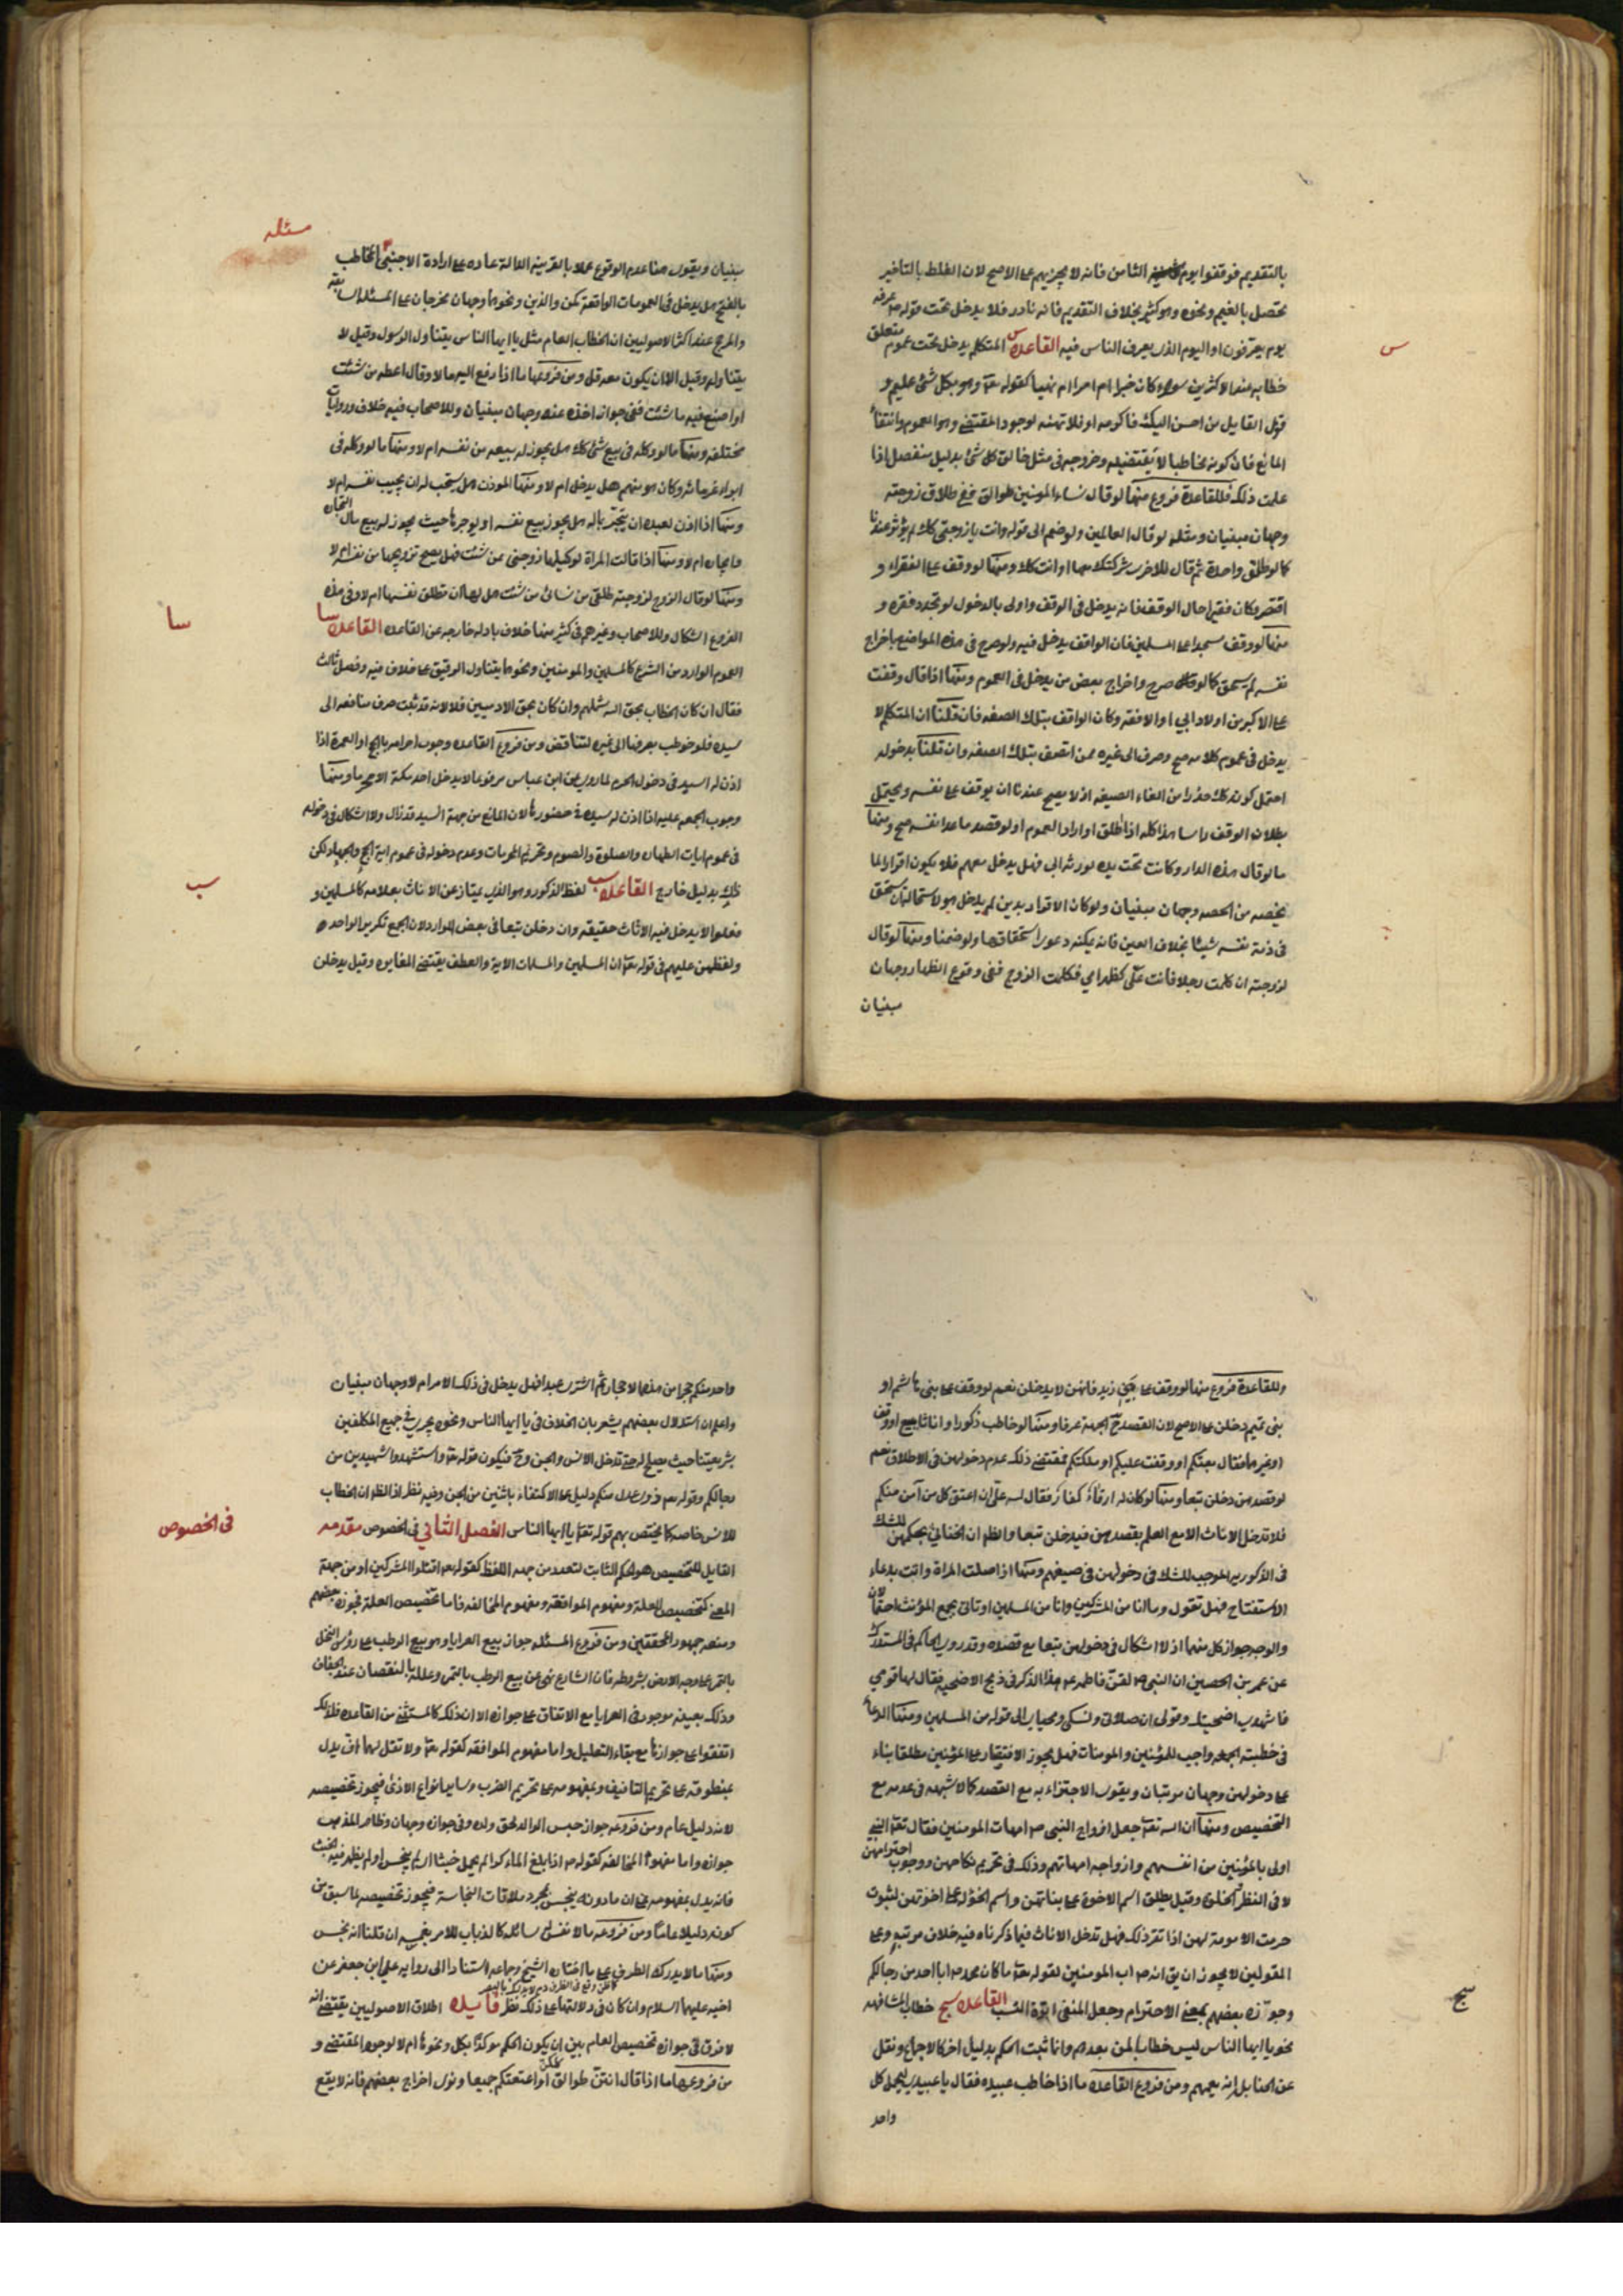 بالتقديم فوقفوا يوم الثامن فانه لا يجزيهم على الاصح لان الغلط بالتاخير
يحصل بالغيم ونحوه وهو كثير بخلاف التقديم فانه نادر فلا يدخل تحت قوله ص عرفه
يوم يعرفون او اليوم الذى يعرف الناس فيه القاعده س المتكلم يدخل تحت عموم متعلق
س
خطابه عند الاكثرين سواء كان خبرا ام امرا ام نهيا كقوله تعا وهو بكل شئ عليم و
قول القايل من احسن اليك فاكرمه او فلا تهنه لوجود المقتضى وهو العموم وانتفاء
المانع فان كونه مخاطبا لا يقتضيه وخروجه فى مثل خالق كل شئ بدليل منفصل اذا
علمت ذلك فللقاعدة فروع منها لو قال نساء المومنين طوالق ففى طلاق زوجته
وجهان مبنيان ومثله لو قال العالمين ولو ضم الى قوله وانت يا زوجتى لم يؤثر عندنا
كما لو طلق واحدة ثم قال للاخرى شركتك معها او انت كك ومنها لو وقف على الفقراء و
افتقر وكان فقيرا حال الوقف فانه يدخل فى الوقف واولى بالدخول لو تجدد فقره و
منها لو وقف مسجدا على المسلمين فان الواقف يدخل فيه ولو صرح فى هذه المواضع باخراج
نفسه لم يستحق كما لو صرح واخراج بعض من يدخل فى العموم ومنها اذا قال وقفت
على الاكبر من اولاد ابى او الافقه وكان الواقف بتلك الصفه فان قلنا ان المتكلم لا
يدخل فى عموم كلامه صح وصرف الى غيره ممن اتصف بتلك الصفه وان قلنا بدخوله
احتمل كونه كك حذرا من الغاء الصيغه اذ لا يصح عندنا ان يوقف على نفسه ويحتمل
بطلان الوقف راسا هذا كله اذا اطلق او اراد العموم اما لو قصد ما عدا نفسه صح ومنها
ما لو قال هذه الدار وكانت تحت يده لورثه ابى فهل يدخل معهم فلا يكون اقرارا بما
يخصه من الحصه وجهان مبنيان ولو كان الاقرار بدين لم يدخل هو لاستحاله ان يستحق
فى ذمة نفسه شيئا بخلاف العين فانه يمكنه دعوى استحقاقها ولو ضمنا ومنها لو قال
لزوجته ان كلمت رجلا فانت على كظهر امى فكلمت الزوج ففى وقوع الظهار وجهان
مبنيان
مسئله
مبنيان ويقوى هنا عدم الوقوع عملا بالقرينة الدالة عاده على ارادة الاجنبى المخاطب
بالفتح هل يدخل فى العمومات الواقعة كمن والذين ونحوها وجهان مخرجان على المسئله السابقه
والمرجح عند اكثر الاصوليين ان الخطاب العام مثل يا ايها الناس يتناول الرسول وقيل لا
يتناوله وقيل الا ان يكون معه قل ومن فروعها ما اذا دفع اليه مالا وقال اعطه من شئت
او اصنع فيه ما شئت ففى جواز اخذه عنه وجهان مبنيان وللاصحاب فيه خلاف وروايات
مختلفه ومنها ما لو وكله فى بيع شئ كك هل يجوز له بيعه من نفسه ام لا ومنها ما لو وكله فى
ابراء غرمائه وكان هو منهم هل يدخل ام لا ومنها الموذن هل يستحب له ان يجيب نفسه ام لا
ومنها اذا اذن لعبده ان يتجر بماله هل يجوز بيع نفسه او يوجرها حيث يجوز له بيع مال التجاره
وايجاره ام لا ومنها اذا قالت المراة لوكيلها زوجنى ممن شئت فهل يصح تزويجها من نفسه ام لا
ومنها لو قال الزوج لزوجته طلقى من نسائى من شئت هل لها ان تطلق نفسها ام لا وفى هذه
الفروع اشكال وللاصحاب وغيرهم فى كثير منها خلاف بادله خارجه عن القاعده القاعده سا
سا
العموم الوارد من الشرع كالمسلمين والمومنين ونحوهما يتناول الرقيق على خلاف فيه وفصل ثالث
فقال ان كان الخطاب بحق الله شملهم وان كان بحق الادميين فلا لانه قد ثبت صرف منافعه الى
سيده فلو خوطب بصرفها الى غيره لتناقض ومن فروع القاعده وجوب احرامه بالحج او العمرة اذا
اذن له السيد فى دخول الحرم لما روى عن ابن عباس مرفوعا لا يدخل احد مكة الا محرما ومنها
وجوب الجمعه عليه اذا اذن له سيده فى حضورها لان المانع من جهة السيد قد زال ولا اشكال فى دخوله
فى عموم ايات الطهاره والصلوة والصوم وتحريم المحرمات وعدم دخوله فى عموم اية الحج والجهاد لكن
ذلك بدليل خارج القاعده سب لفظ الذكور وهو الذى يمتاز عن الاناث بعلامه كالمسلمين و
سب
فعلوا لا يدخل فيه الاناث حقيقه وان دخلن تبعا فى بعض الموارد لان الجمع تكرير الواحد
ولعطفهن عليهم فى قوله تعا ان المسلمين والمسلمات الاية والعطف يقتضى المغايره وقيل يدخلن
وللقاعدة فروع منها لو وقف على بنى زيد فانهن لا يدخلن نعم لو وقف على بنى هاشم او
بنى تميم دخلن على الاصح لان القصد ح الجهة عرفا ومنها لو خاطب ذكورا واناثا ببيع او وقف
او غيرهما فقال بعتكم او وقفت عليكم او ملكتكم فمقتضى ذلك عدم دخولهن فى الاطلاق نعم
لو قصدهن دخلن تبعا ومنها لو كان له ارقاء كفار فقال لله على ان اعتق كل من آمن منكم
فلا تدخل الاناث الا مع العلم بقصدهن فيدخلن تبعا والظ ان الخناثى بحكمهن للشك
فى الذكوريه الموجب للشك فى دخولهن فى صيغهم ومنها اذا صلت المراة واتت بدعاء
الاستفتاح فهل تقول وما انا من المشركين وانا من المسلمين او تاتى بجمع المؤنث احتمالان
والوجه جواز كل منهما اذ لا اشكال فى دخولهن تبعا مع قصده وقد روى الحاكم فى المستدرك
عن عمر بن الحصين ان النبى ص لقن فاطمه ع هذا الذكر فى ذبح الاضحيه فقال لها قومى
فاشهدى اضحيتك وقولى ان صلاتى ونسكى ومحياى الى قوله من المسلمين ومنها الدعاء
فى خطبته الجمعه واجب للمؤمنين والمومنات فهل يجوز الاقتصار على المؤمنين مطلقا بناء
على دخولهن وجهان مرتبان ويقوى الاجتزاء به مع القصد كما لا شبهه فى عدمه مع
التخصيص ومنها ان الله تعا جعل ازواج النبى ص امهات المومنين فقال تعا النبى
اولى بالمؤمنين من انفسهم وازواجه امهاتهم وذلك فى تحريم نكاحهن ووجوب احترامهن
لا فى النظر والخلوة وقيل يطلق اسم الاخوة على بناتهن واسم الخؤله على اخوتهن لثبوت
حرمت الامومة لهن اذا تقرر ذلك فهل تدخل الاناث فيما ذكرناه فيه خلاف مرتب وعلى
القولين لا يجوز ان يق انه ص اب المومنين لقوله تعا ما كان محمد ص ابا احد من رجالكم
وجوزه بعضهم بمعنى الاحترام وجعل المنفى ابوة النسب القاعده سج خطاب المشافهه
سج
نحو يا ايها الناس ليس خطابا لمن بعدهم وانما ثبت الحكم بدليل اخر كالاجماع ونقل
عن الحنابله انه يعمهم ومن فروع القاعده ما اذا خاطب عبيده فقال يا عبيدى ليحمل كل
واحد
واحد منكم حجرا من هذه الاحجار ثم اشترى عبدا فهل يدخل فى ذلك الامر ام لا وجهان مبنيان
واعلم ان استدلال بعضهم يشعر بان الخلاف فى يا ايها الناس ونحوه يجرى فى جميع المكلفين
بشريعتنا حيث يصلح له حتى تدخل الانس والجن وح فيكون قوله تعا واستشهدوا شهيدين من
رجالكم وقوله تع ذوى عدل منكم دليل على الاكتفاء باثنين من الجن وفيه نظر اذ الظ ان الخطاب
للانس خاصه كما يختص بهم قوله تعا يا ايها الناس الفصل الثانى فى الخصوص مقدمه
فى الخصوص
القابل للتخصيص هو الحكم الثابت لمتعدد من جهه اللفظ كقوله تعا اقتلوا المشركين او من جهة
المعنى كتخصيص العلة ومفهوم الموافقه ومفهوم المخالفه فاما تخصيص العلة فجوزه بعضهم
ومنعه جمهور المحققين ومن فروع المسئله جواز بيع العرايا وهو بيع الرطب على رؤس النخل
بالتمر على وجه الارض بشروطه فان الشارع نهى عن بيع الرطب بالتمر وعلله بالنقصان عند الجفاف
وذلك بعينه موجود فى العرايا مع الاتفاق على جوازه الا ان ذلك كالمستثنى من القاعده فلذلك
اتفقوا على جوازها مع بقاء التعليل واما مفهوم الموافقه كقوله تعا ولا تقل لهما اف يدل
بمنطوقه على تحريم التافيف وبمفهومه على تحريم الضرب وساير انواع الاذى فيجوز تخصيصه
لانه دليل عام ومن فروعه جواز حبس الوالد لحق ولده وفى جوازه وجهان وظاهر المذهب
جوازه واما مفهوم المخالفه كقوله ص اذا بلغ الماء كرا لم يحمل خبثا اى لم ينجس او لم يظهر فيه الخبث
فانه يدل بمفهومه على ان ما دونه ينجس بمجرد ملاقات النجاسة فيجوز تخصيصه لما سبق من
كونه دليلا عاما ومن فروعه ما لا نفس له سائله كالذباب للامر بغمسه ان قلنا انه نجس
ومنها ما لا يدركه الطرف على ما اختاره الشيخ وجماعه استنادا الى روايه على ابن جعفر عن
اخيه عليهما السلام وان كان فى دلالتها على ذلك نظر فايده اطلاق الاصوليين يقتضى انه
لا فرق فى جواز تخصيص العام بين ان يكون الحكم موكدا بكل ونحوها ام لا لوجود المقتضى و
من فروعها ما اذا قال انتن طوالق كلكن او اعتقتكم جميعا ونوى اخراج بعضهم فانه لا يقع